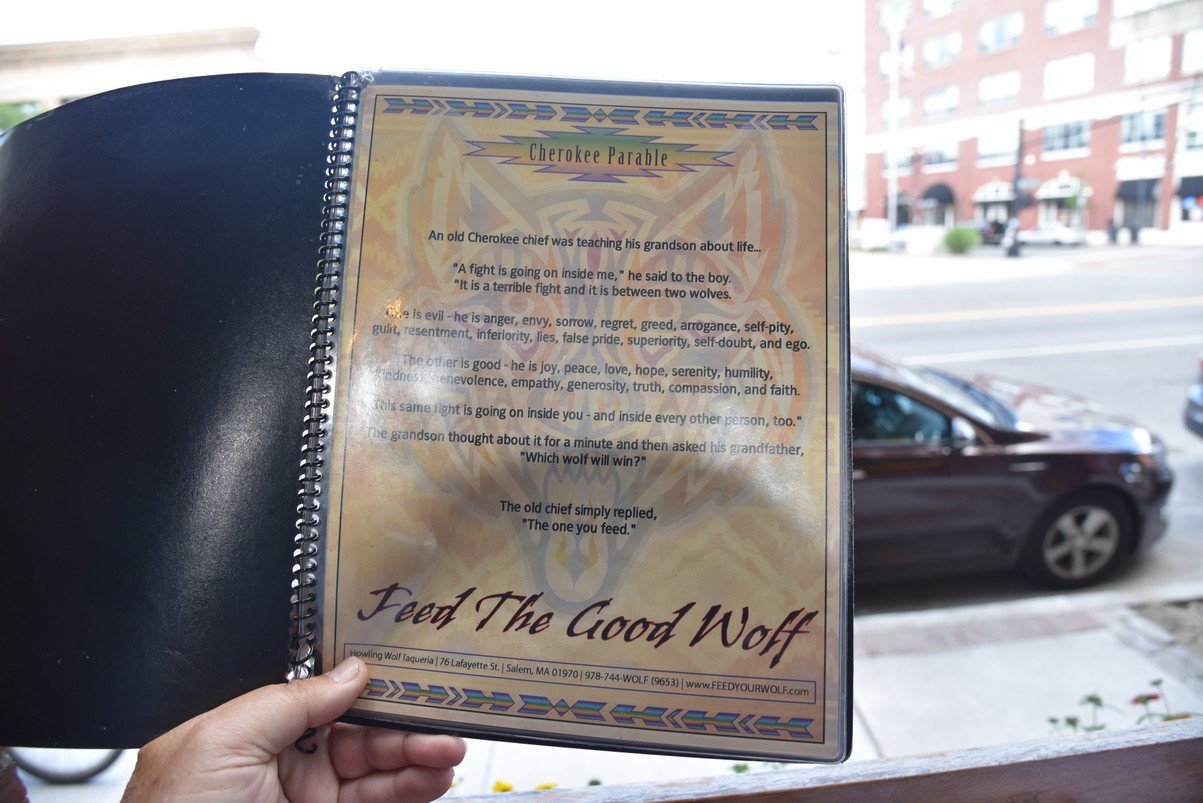 Cherokee Parable
An old Cherokee chief was teaching his grandson about life...
"A fight is going on inside me," he said to the boy.
"It is a terrible fight and it is between two wolves.
One is evil - he is anger, envy, sorrow, regret, greed, arrogance, self-pity,
guilt, resentment, inferiority, lies, false pride, superiority, self-doubt, and ego.
The other is good - he is joy, peace, love, hope, serenity, humility,
kindness, benevolence, empathy, generosity, truth, compassion, and faith.
This same fight is going on inside you - and inside every other person, too."
The grandson thought about it for a minute and then asked his grandfather,
"Which wolf will win?"
The old chief simply replied,
"The one you feed."
Feed The Good Wolf
Howling Wolf Taqueria | 76 Lafayette St. | Salem, MA 01970 | 978-744-WOLF (9653) | www.FEEDYOURWOLF.com